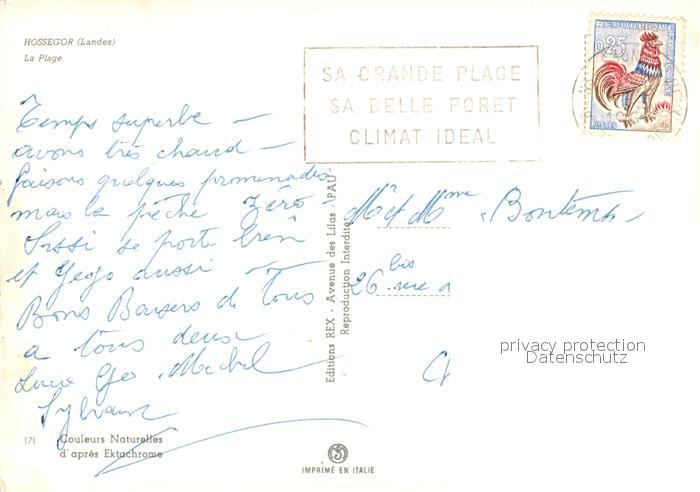 HOSSEGOR (Landes)
La Plage
SA GRANDE PLAGE
SA BELLE FORET
CLIMAT IDEAL
REPUBLIQUE FRANCAISE
0,25
POSTES
Temps superbe —
avons très chaud —
faisons quelques promenades
mais la pêche Zéro
Sissi se porte bien
et Gégo aussi —
Bons Baisers de Tous
a tous deux
Lucie Geo Michel
Sylvain
Mr et Mme Bontemps
26 bis rue
Editions REX - Avenue des Lilas - PAU
Reproduction Interdite
privacy protection
Datenschutz
171 Couleurs Naturelles
d'après Ektachrome
IMPRIMÉ EN ITALIE